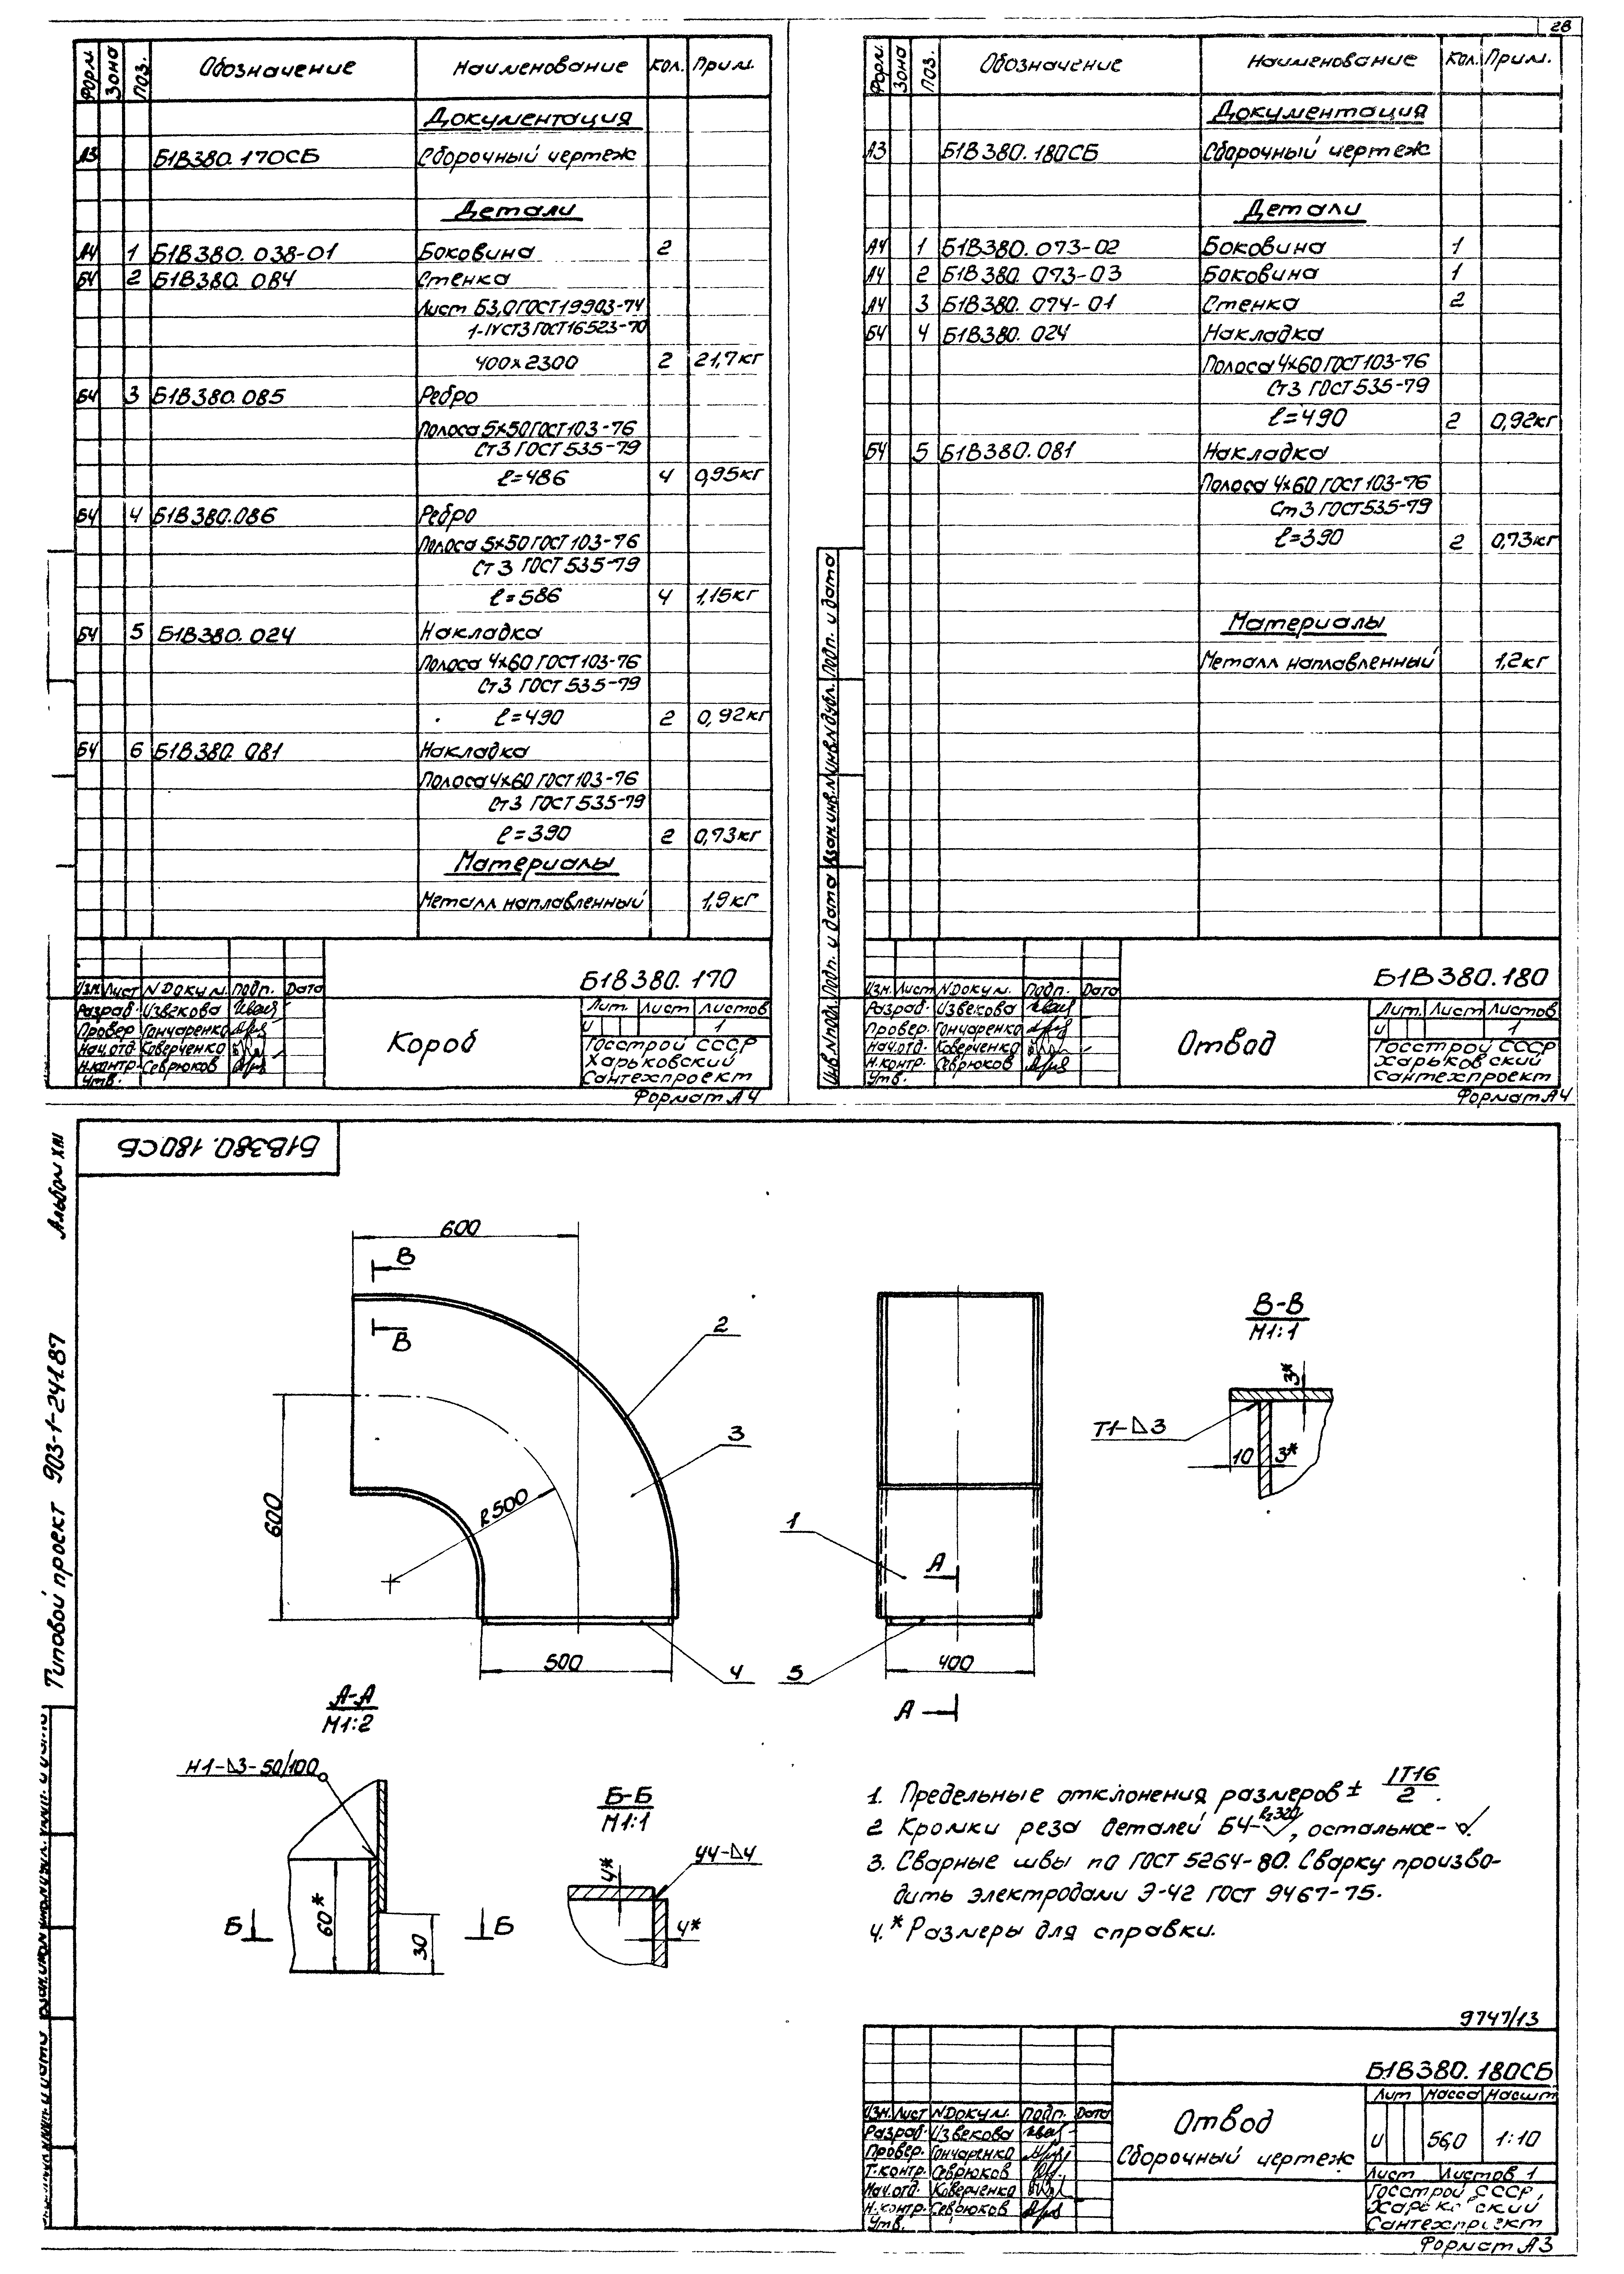 28
Форм. Зона Поз. Обозначение Наименование Кол. Прим.
Документация
А3 Б1В380.170СБ Сборочный чертеж
Детали
А4 1 Б1В380.038-01 Боковина 2
БЧ 2 Б1В380.084 Стенка
Лист Б3,0 ГОСТ 19903-74
1-IV Ст3 ГОСТ 16523-70
400х2300 2 21,7кг
БЧ 3 Б1В380.085 Ребро
Полоса 5х50 ГОСТ 103-76
Ст3 ГОСТ 535-79
ℓ=486 4 0,95кг
БЧ 4 Б1В380.086 Ребро
Полоса 5х50 ГОСТ 103-76
Ст3 ГОСТ 535-79
ℓ=586 4 1,15кг
БЧ 5 Б1В380.024 Накладка
Полоса 4х60 ГОСТ 103-76
Ст3 ГОСТ 535-79
ℓ=490 2 0,92кг
БЧ 6 Б1В380.081 Накладка
Полоса 4х60 ГОСТ 103-76
Ст3 ГОСТ 535-79
ℓ=390 2 0,73кг
Материалы
Металл наплавленный 1,9кг
Б1В380.170
Изм. Лист N Докум. Подп. Дата
Разраб. Извекова
Провер. Гончаренко
Нач.отд. Коверченко
Н.контр. Севрюков
Утв.
Короб
Лит. Лист Листов
И 1
Госстрой СССР
Харьковский
Сантехпроект
Формат А4
Форм. Зона Поз. Обозначение Наименование Кол. Прим.
Документация
А3 Б1В380.180СБ Сборочный чертеж
Детали
А4 1 Б1В380.073-02 Боковина 1
А4 2 Б1В380.073-03 Боковина 1
А4 3 Б1В380.074-01 Стенка 2
БЧ 4 Б1В380.024 Накладка
Полоса 4х60 ГОСТ 103-76
Ст3 ГОСТ 535-79
ℓ=490 2 0,92кг
БЧ 5 Б1В380.081 Накладка
Полоса 4х60 ГОСТ 103-76
Ст3 ГОСТ 535-79
ℓ=390 2 0,73кг
Материалы
Металл наплавленный 1,2кг
Инв.N подл. Подп. и дата Взам.инв.N Инв.N дубл. Подп. и дата
Б1В380.180
Изм. Лист N Докум. Подп. Дата
Разраб. Извекова
Провер. Гончаренко
Нач.отд. Коверченко
Н.контр. Севрюков
Утв.
Отвод
Лит. Лист Листов
И 1
Госстрой СССР
Харьковский
Сантехпроект
Формат А4
Б1В380.180СБ
Альбом XIII
Типовой проект 903-1-241.87
600
В
В
2
3
600
R500
500
4
1
А
5
400
А
В-В
М1:1
3*
Т1-⊿3
10
3*
А-А
М1:2
Н1-⊿3-50/100
60*
30
Б
Б
Б-Б
М1:1
4*
У4-⊿4
4*
1. Предельные отклонения размеров ± IT16/2.
2 Кромки реза деталей БЧ- Rz320, остальное-
3. Сварные швы по ГОСТ 5264-80. Сварку произво-
дить электродами Э-42 ГОСТ 9467-75.
4.* Размеры для справки.
9747/13
Б1В380.180СБ
Изм. Лист N Докум. Подп. Дата
Разраб. Извекова
Провер. Гончаренко
Т.контр. Севрюков
Нач.отд. Коверченко
Н.контр. Севрюков
Утв.
Отвод
Сборочный чертеж
Лит Масса Масшт
И 56,0 1:10
Лист Листов 1
Госстрой СССР
Харьковский
Сантехпроект
Формат А3